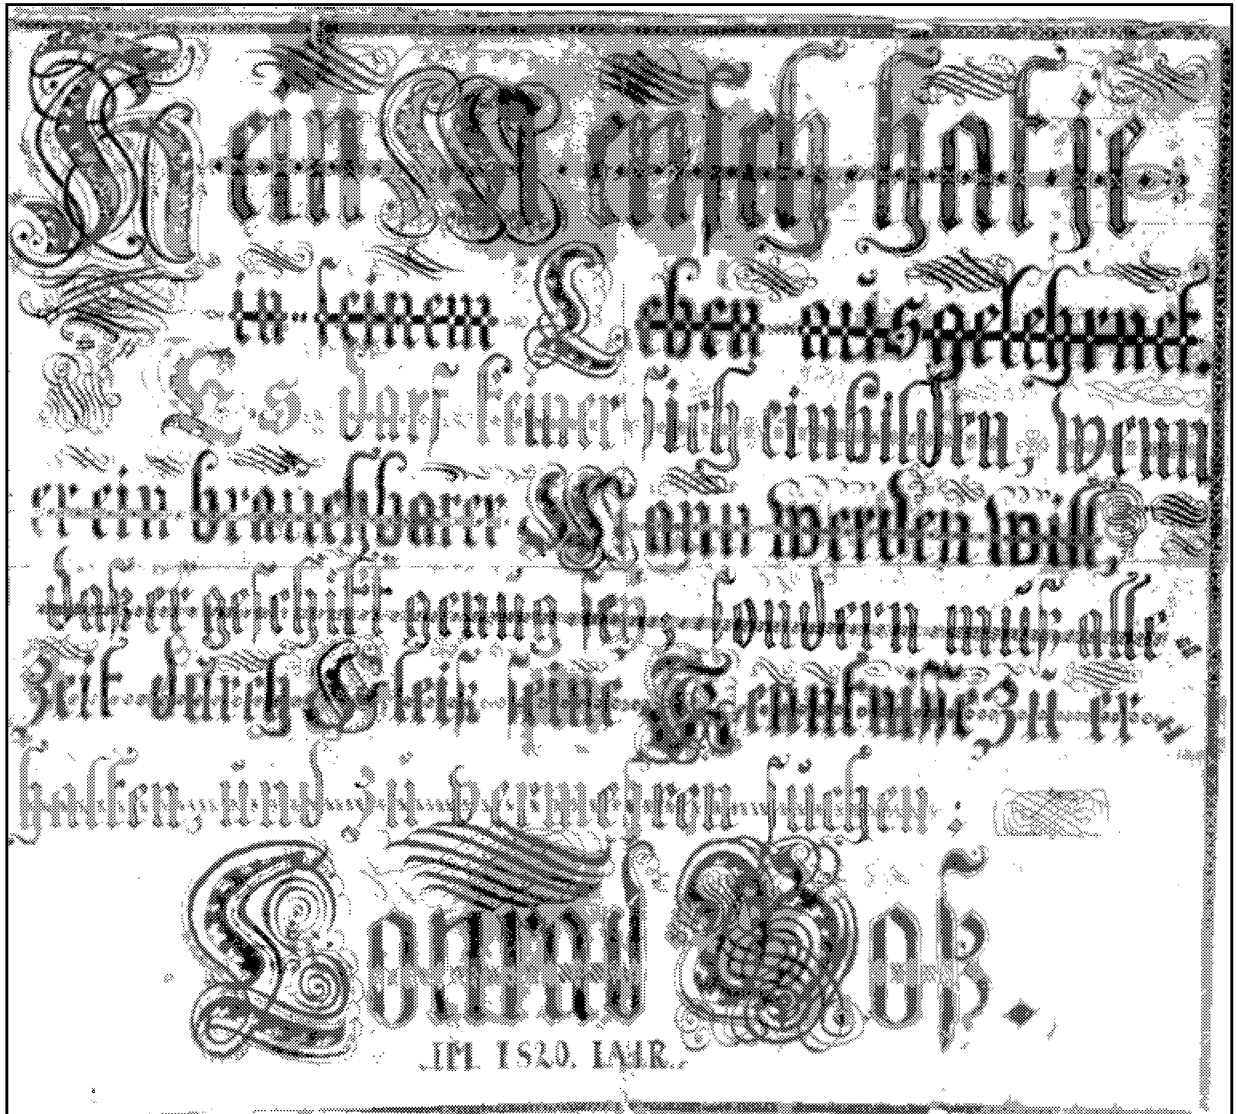 Kein Mensch hat je
in seinem Leben ausgelehrnet.
Es darf keiner sich einbilden, wenn
er ein brauchbarer Mann werden will,
daß er geschikt genug sey, sondern muß alle
Zeit durch Fleiß seine Kenntniße zu er
halten, und zu vermehren suchen:
Conrad
IM 1820. IAHR.